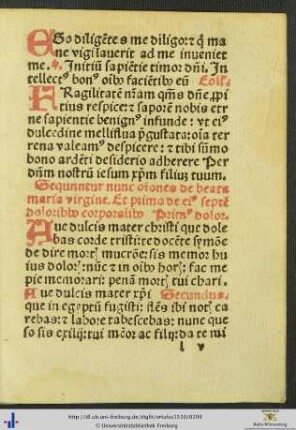 EGo diligētes me diligo: ⁊ q̄ ma
ne vigilauerit ad me inueniet
me. Initiū sapiētie timor dn̄i. In
tellectꝰ bonꝰ oībꝰ faciētibꝰ eū Coll'.
FRagilitatē nr̄am qm̄s dn̄e ꝓpi
tius respice: ⁊ saporē nobis etr̄
ne sapientie benignꝰ infunde: vt eiꝰ
dulcedine melliflua p̄gustata: oīa ter
rena valeamꝰ despicere: ⁊ tibi sūmo
bono ardēti desiderio adherere Per
dn̄m nostrū iesum xp̄m filiuꝫ tuum.
Sequuntur nunc or̄ones de beata
maria virgine. Et primo de eiꝰ septē
doloribꝰ corporalibꝰ Prim' dolor.
AUe dulcis mater christi que dole
bas corde tristi: te docēte symōe
de dire mortꝭ mucrōe: sis memor hu
ius dolorꝭ: nūc ⁊ in oībꝰ horꝭ: fac me
pie memorari: penā mortꝭ tui chari.
Aue dulcis mater xp̄i Secundus.
que in egyptū fugisti: flēs ibi notꝭ ca
rebas: ⁊ labore tabescebas: nunc que
so sis exilij: tui mēor ac filij: da te mi
l v
http://dl.ub.uni-freiburg.de/diglit/ortulus1520/0209
© Universitätsbibliothek Freiburg
Baden-Württemberg